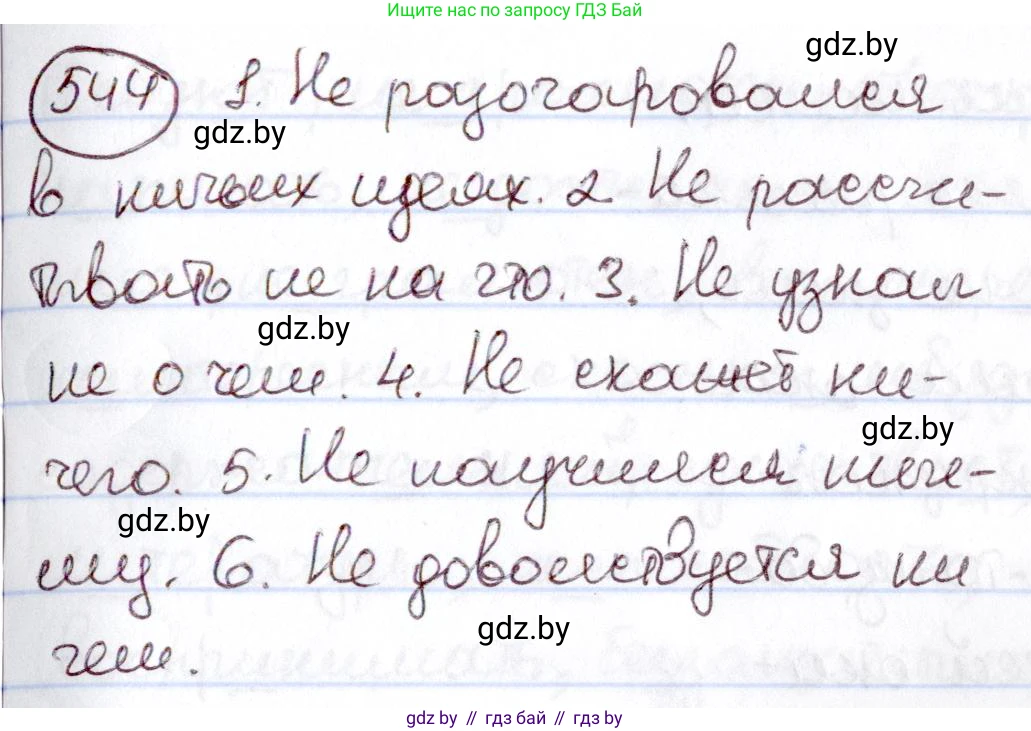 Ищите нас по запросу ГДЗ Бай
gdz.by
544 1. Не разочаровался
gdz.by
в ничьих идеях. 2 Не рассчи-
тывать не на что. 3. Не узнал
gdz.by
не о чем. 4. Не скажет ни-
gdz.by
чего. 5. Не научился
gdz.by
му. 6. Не довольствуется ни
gdz.by
чем.
gdz.by // гдз бай // гдз by